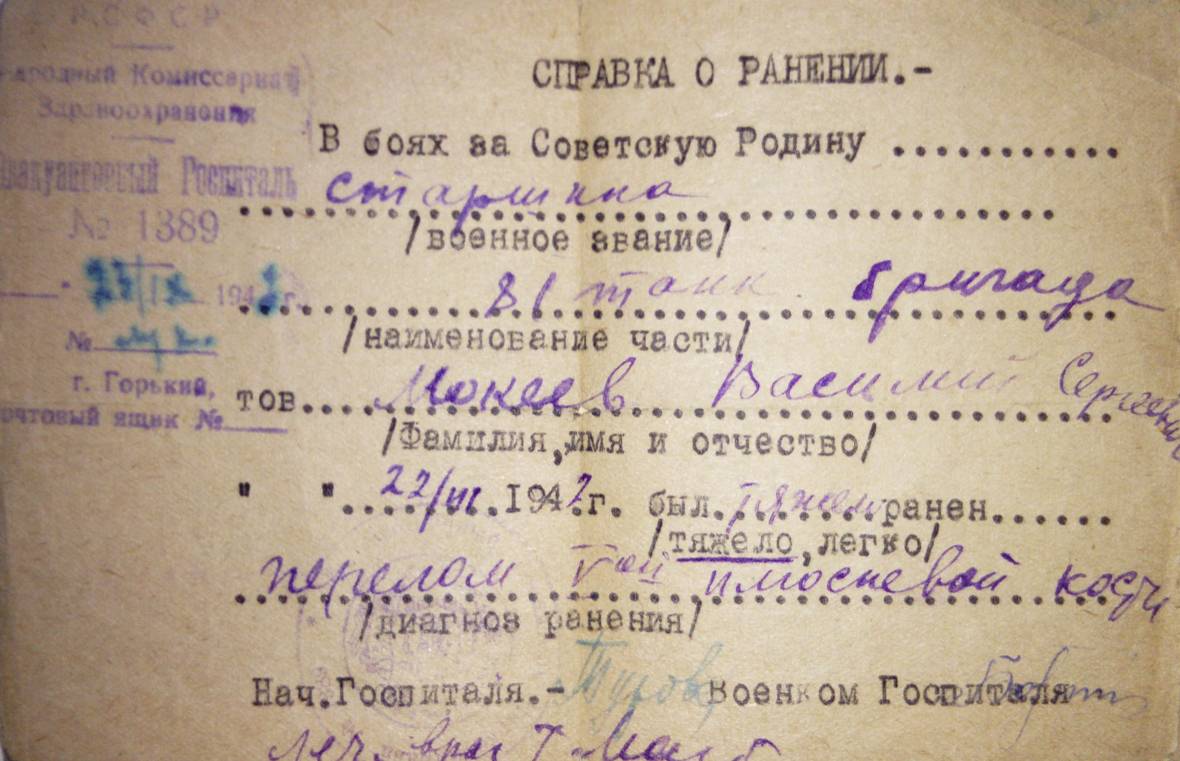 РСФСР
Народный Комиссариат
Здравоохранения
Эвакуационный Госпиталь
№ 1389
194 г.
№
г. Горький,
почтовый ящик №
СПРАВКА О РАНЕНИИ.-
В боях за Советскую Родину ............
старшина
/военное звание/
81 танк. бригада
/наименование части/
тов. Мокеев Василий Сергеевич
/Фамилия,имя и отчество/
" " 22/ 1942г. был тяжело ранен......
/тяжело,легко/
перелом V ой плюсневой кости
/диагноз ранения/
Нач.Госпиталя.- Военком Госпиталя
леч. врач